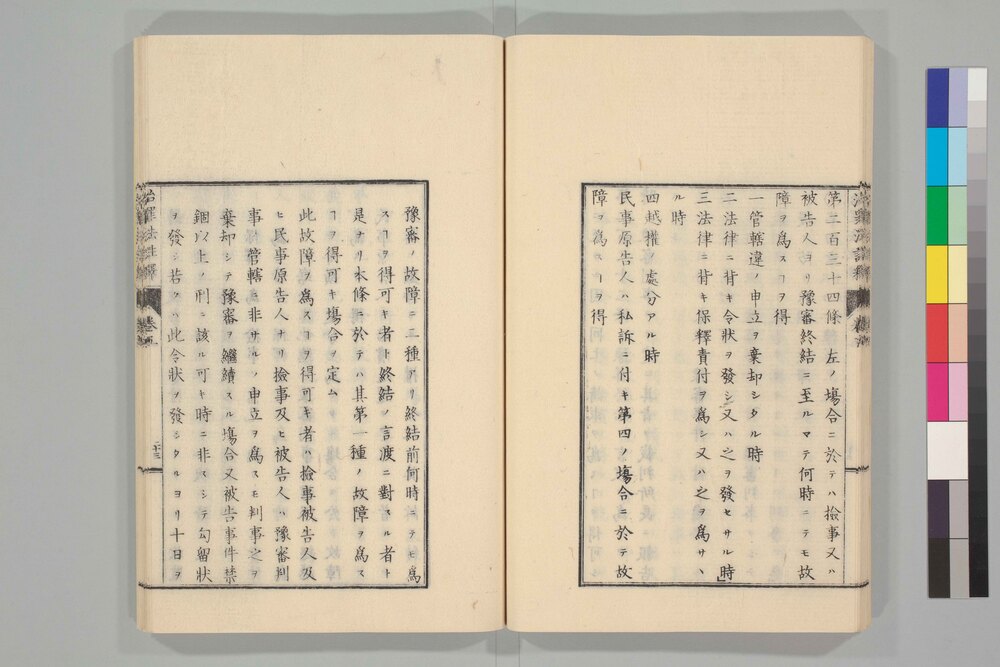 第二百三十四條 左ノ塲合ニ於テハ撿事又ハ
被告人ヨリ豫審終結ニ至ルマテ何時ニテモ故
障ヲ爲スヿヲ得
一管轄違ノ申立ヲ棄却シタル時
二法律ニ背キ令狀ヲ發シ又ハ之ヲ發セサル時
三法律ニ背キ保釋責付ヲ爲シ又ハ之ヲ爲サヽ
ル時
四越權ノ處分アル時
民事原告人ハ私訴ニ付キ第四ノ塲合ニ於テ故
障ヲ爲スヿヲ得
豫審ノ故障ニ二種アリ終結前何時ニテモ爲
スヿヲ得可キ者ト終結ノ言渡ニ對スル者ト
是ナリ本條ニ於テハ其第一種ノ故障ヲ爲ス
ヿヲ得可キ塲合ヲ定ム
此故障ヲ爲スヿヲ得可キ者ハ撿事被告人及
ヒ民事原告人ナリ撿事及ヒ被告人ハ豫審判
事ノ管轄ニ非サルノ申立ヲ爲スモ判事之ヲ
棄却シテ豫審ヲ繼續スル塲合又被告事件禁
錮以上ノ刑ニ該ル可キ時ニ非スシテ勾留狀
ヲ發シ若クハ此令狀ヲ發シタルヨリ十日ヲ
治罪法註釋 卷五
二十三